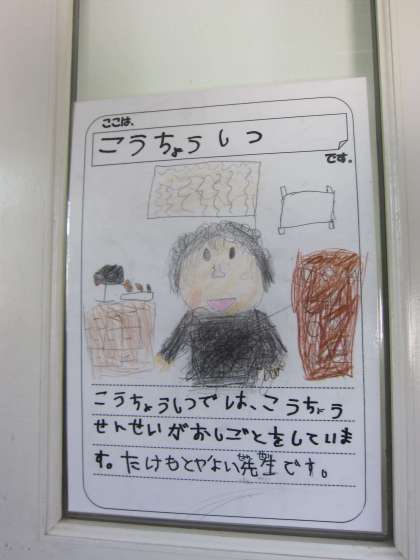 ここは、
こうちょうしつ
です。
こうちょうしつでは、こうちょう
せんせいがおしごとをしていま
す。たけもとやよい先生です。